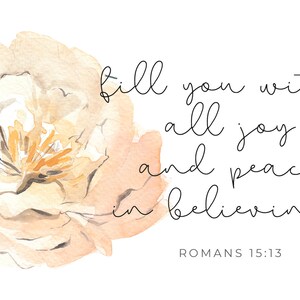 fill you wi
all joy
and peac
in believin
ROMANS 15:13